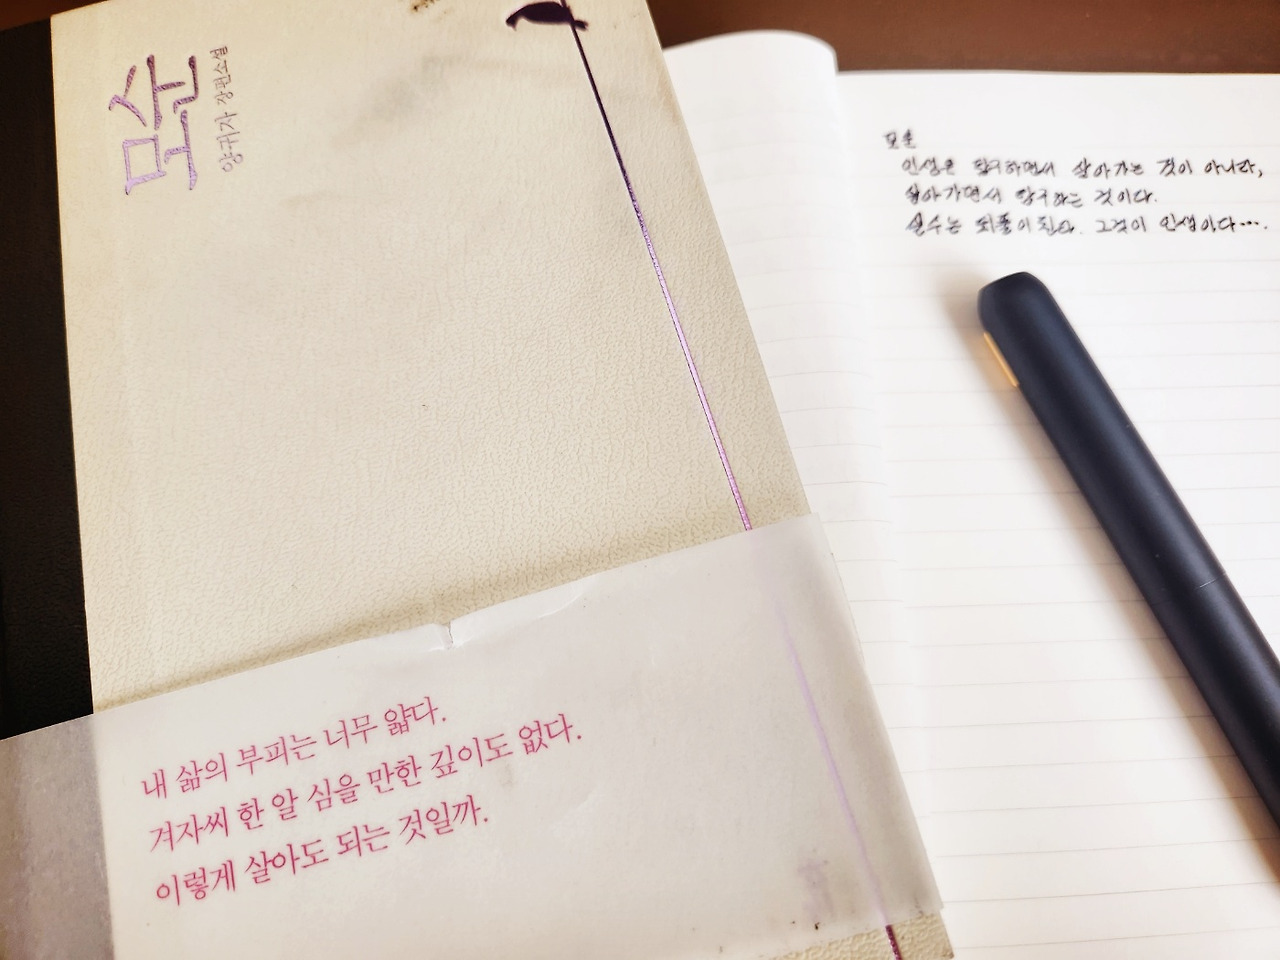 모순
양귀자 장편소설
내 삶의 부피는 너무 얇다.
겨자씨 한 알 심을 만한 깊이도 없다.
이렇게 살아도 되는 것일까.
모순
인생은 탐구하면서 살아가는 것이 아니라,
살아가면서 탐구하는 것이다.
실수는 되풀이된다. 그것이 인생이다….